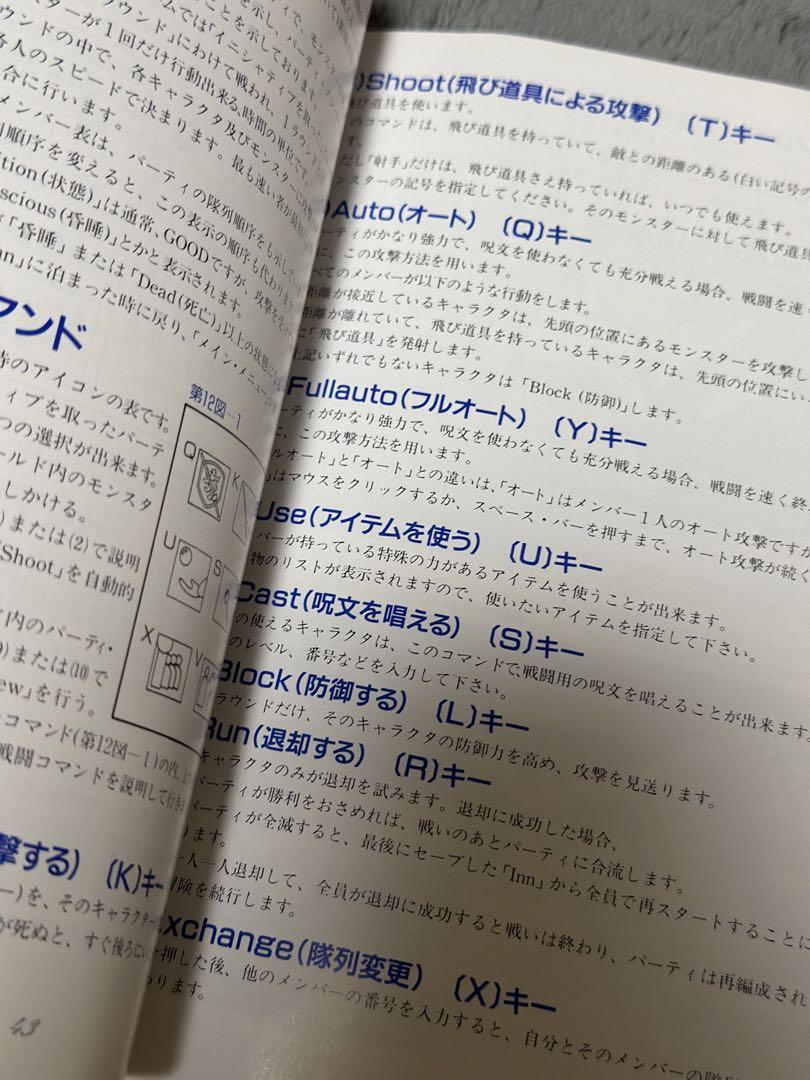 示し、パーティ・
ティで、モンスター
ムでは「イニシャティブを取った
ウンド」にわけて戦われ、1ラウンド
ターが1回だけ行動出来る、時間の単位です。
ウンドの中で、各キャラクタ及びモンスターに
各人のスピードで決まります。最も速い者が最初
合に行います。
メンバー表は、パーティの隊列順序をも示して
列順序を変えると、この表示の順序も代わります。
ition(状態)」は通常、GOODですが、攻撃を
scious(昏睡)」とかと表示されます。
「昏睡」または「Dead(死亡)」以上の状態に
nn」に泊まった時に戻り、「メイン・メニュー」
マンド
時のアイコンの表です。
ィブを取ったパーテ
つの選択が出来ます。
ールド内のモンスタ
しかける。
)または(2)で説明
Shoot」を自動的
ド内のパーティ・
9)または(10)で
ew」を行う。
コマンド(第12図-1)の内、
戦闘コマンドを説明して行き
撃する) 〔K〕キー
ー)を、そのキャラクター
が死ぬと、すぐ後ろに
43
第12図-1
Q
K
U
S
X
V
)Shoot(飛び道具による攻撃) 〔T〕キー
飛び道具を使います。
のコマンドは、飛び道具を持っていて、敵との距離のある(白い記号の
す。
だし「射手」だけは、飛び道具さえ持っていれば、いつでも使えます。
ンスターの記号を指定してください。そのモンスターに対して飛び道具
)Auto(オート) 〔Q〕キー
ーティがかなり強力で、呪文を使わなくても充分戦える場合、戦闘を速く
に、この攻撃方法を用います。
べてのメンバーが以下のような行動をします。
距離が接近しているキャラクタは、先頭の位置にあるモンスターを攻撃し
距離が離れていて、飛び道具を持っているキャラクタは、先頭の位置にい
に「飛び道具」を発射します。
上記いずれでもないキャラクタは「Block (防御)」します。
Fullauto(フルオート) 〔Y〕キー
ーティがかなり強力で、呪文を使わなくても充分戦える場合、戦闘を速く終
に、この攻撃方法を用います。
ルオート」と「オート」との違いは、「オート」はメンバー1人のオート攻撃ですが
」はマウスをクリックするか、スペース・バーを押すまで、オート攻撃が続く
Use(アイテムを使う) 〔U〕キー
バーが持っている特殊の力があるアイテムを使うことが出来ます。
物のリストが表示されますので、使いたいアイテムを指定して下さい。
Cast(呪文を唱える) 〔S〕キー
の使えるキャラクタは、このコマンドで、戦闘用の呪文を唱えることが出来ます。
のレベル、番号などを入力して下さい。
Block(防御する) 〔L〕キー
ラウンドだけ、そのキャラクタの防御力を高め、攻撃を見送ります。
Run(退却する) 〔R〕キー
ャラクタのみが退却を試みます。退却に成功した場合、
パーティが勝利をおさめれば、戦いのあとパーティに合流します。
パーティが全滅すると、最後にセーブした「Inn」から全員で再スタートすることに
ります。
一人一人退却して、全員が退却に成功すると戦いは終わり、パーティは再編成され
冒険を続行します。
xchange(隊列変更) 〔X〕キー
押した後、他のメンバーの番号を入力すると、自分とそのメンバーの隊列
わります。